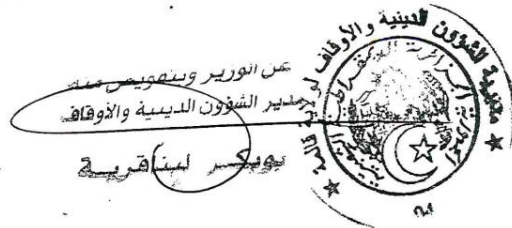 عن الوزير وبتفويض منه
مدير الشؤون الدينية والأوقاف
بوبكر
مديرية الشؤون الدينية والأوقاف لولاية قالمة
الجمهورية الجزائرية الديمقراطية الشعبية